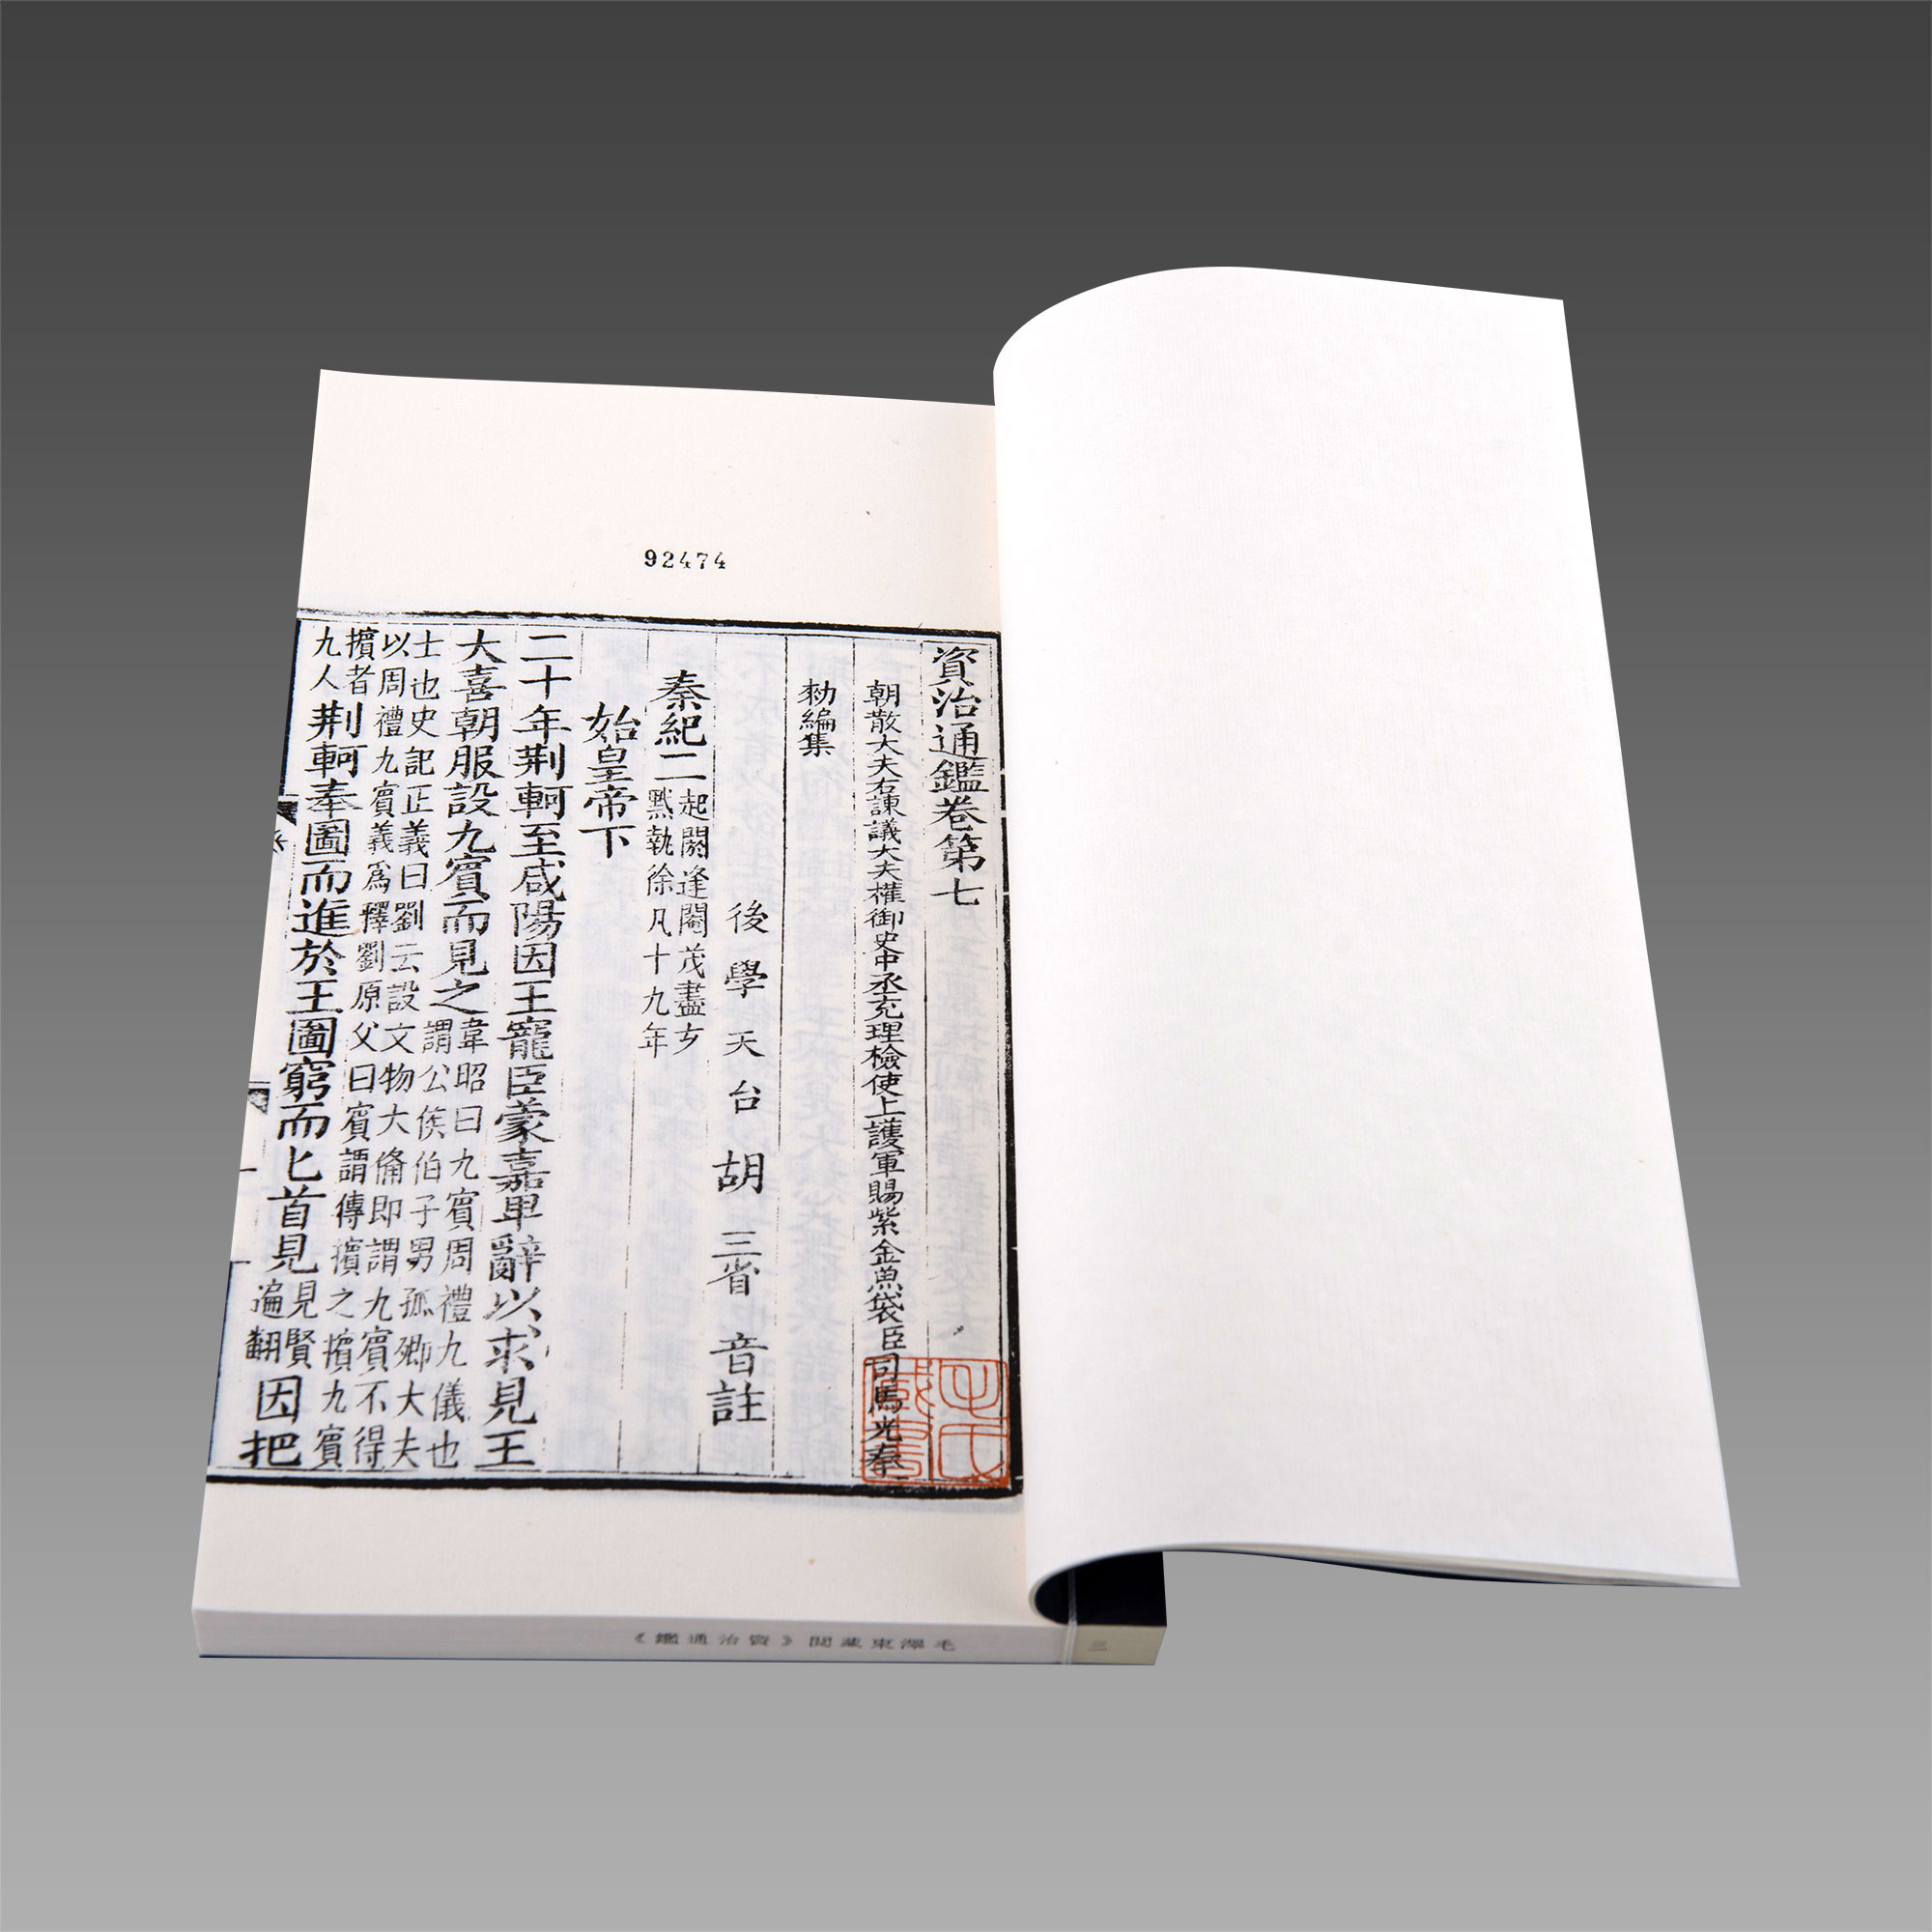 92474
資治通鑑卷第七
朝散大夫右諫議大夫權御史中丞充理檢使上護軍賜紫金魚袋臣司馬光奉
勑編集
後學天台胡三省音註
秦紀二起閼逢閹茂盡玄
黓執徐凡十九年
始皇帝下
二十年荆軻至咸陽因王寵臣蒙嘉卑辭以求見王
大喜朝服設九賓而見之韋昭曰九賓周禮九儀也
謂公侯伯子男孤卿大夫
士也史記正義曰劉云設文物大僃即謂九賓不得
以周禮九賓義爲釋劉原父曰賓謂傳擯之擯九賓
擯者
九人荆軻奉圖而進於王圖窮而匕首見見賢
遍翻因把
毛氏藏書
毛澤東藏閲《資治通鑑》
三